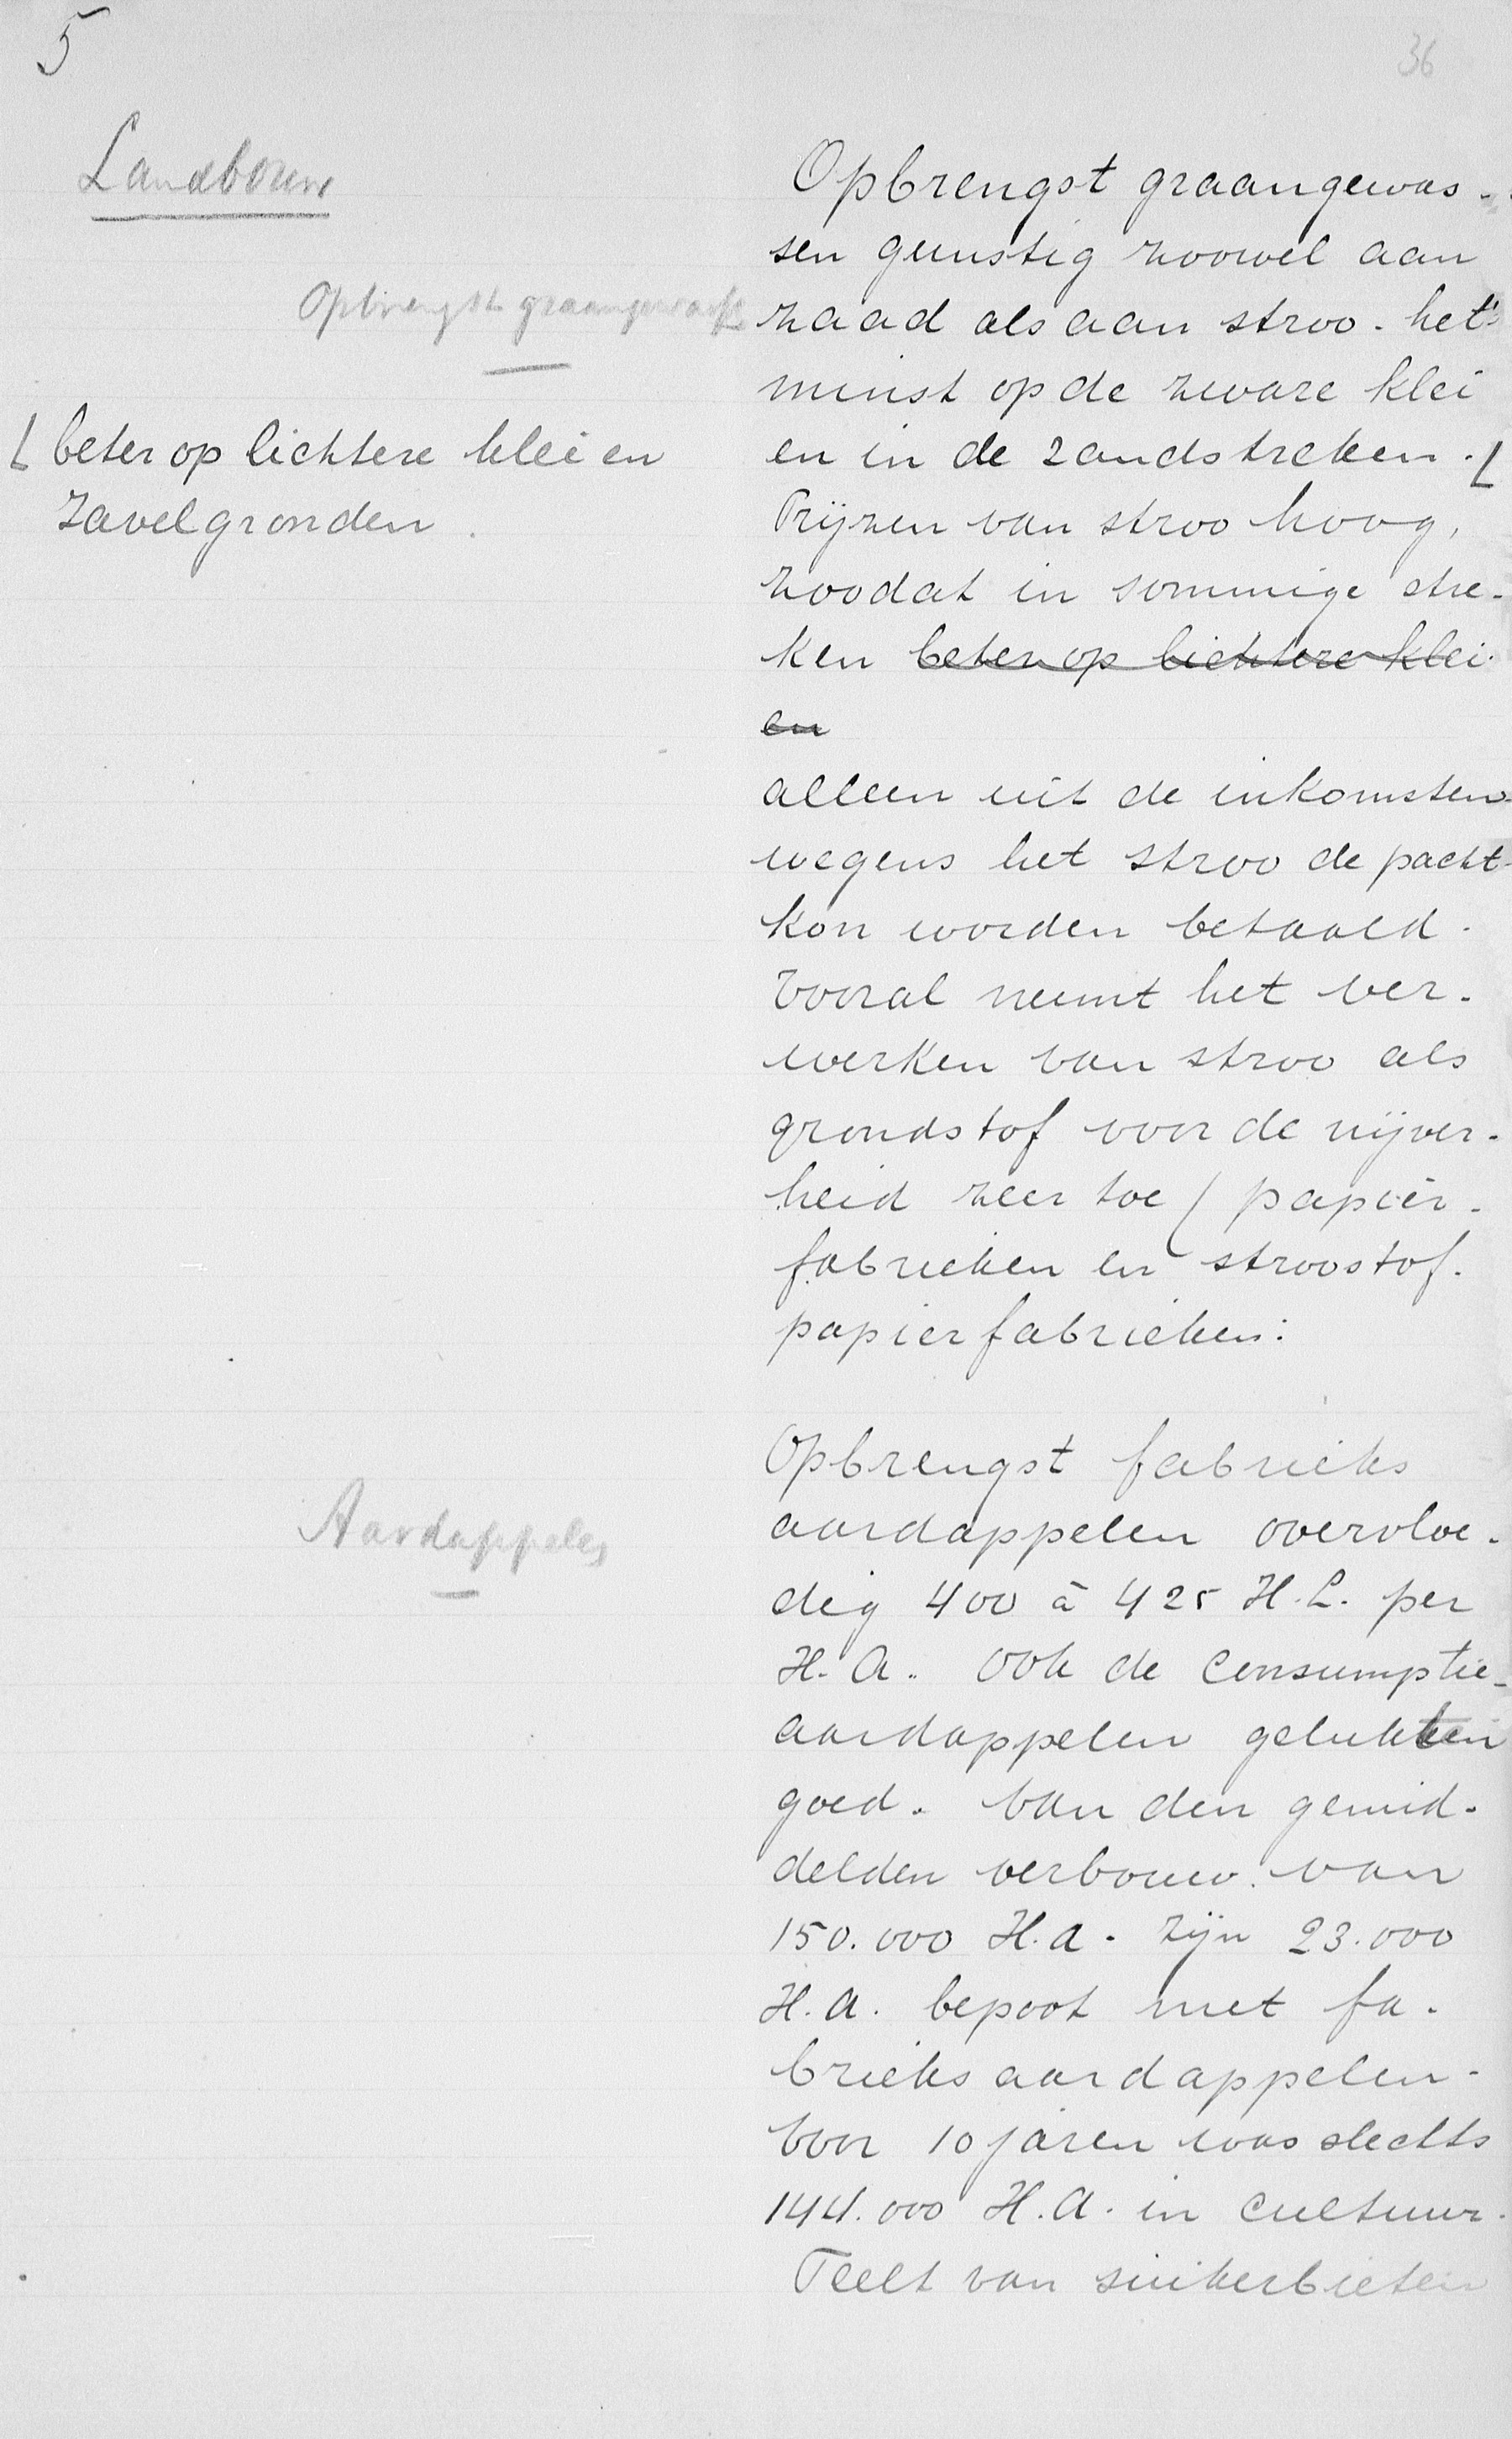 5
36
Landbouw
Opbrengst graangewas-
sen gunstig zoowel aan
Opbrengst
zaad als aan stroo. het
minst op de zware klei
beter op lichtere klei en
en in de zandstreken.
zavelgronden.
Prijzen van stroo hoog,
zoodat in sommige stre-
ken beter op lichtere klei
en
alleen uit de inkomsten
wegens het stroo de pacht
kon worden betaald.
Vooral neemt het ver-
werken van stroo als
grondstof voor de nijver-
heid zeer toe (papier-
fabrieken en stroostof-
papierfabrieken:
Opbrengst fabrieks
Aardappelen
aardappelen overvloe-
dig 400 à 425 H.L. per
H.A. Ook de Consumptie-
aardappelen gelukten
goed. Van den gemid-
delden verbouw van
150.000 H.A. zijn 23.000
H.A. bepoot met fa-
brieksaardappelen.
Voor 10 jaren was slechts
144.000 H.A. in Cultuur.
Teelt van suikerbieten